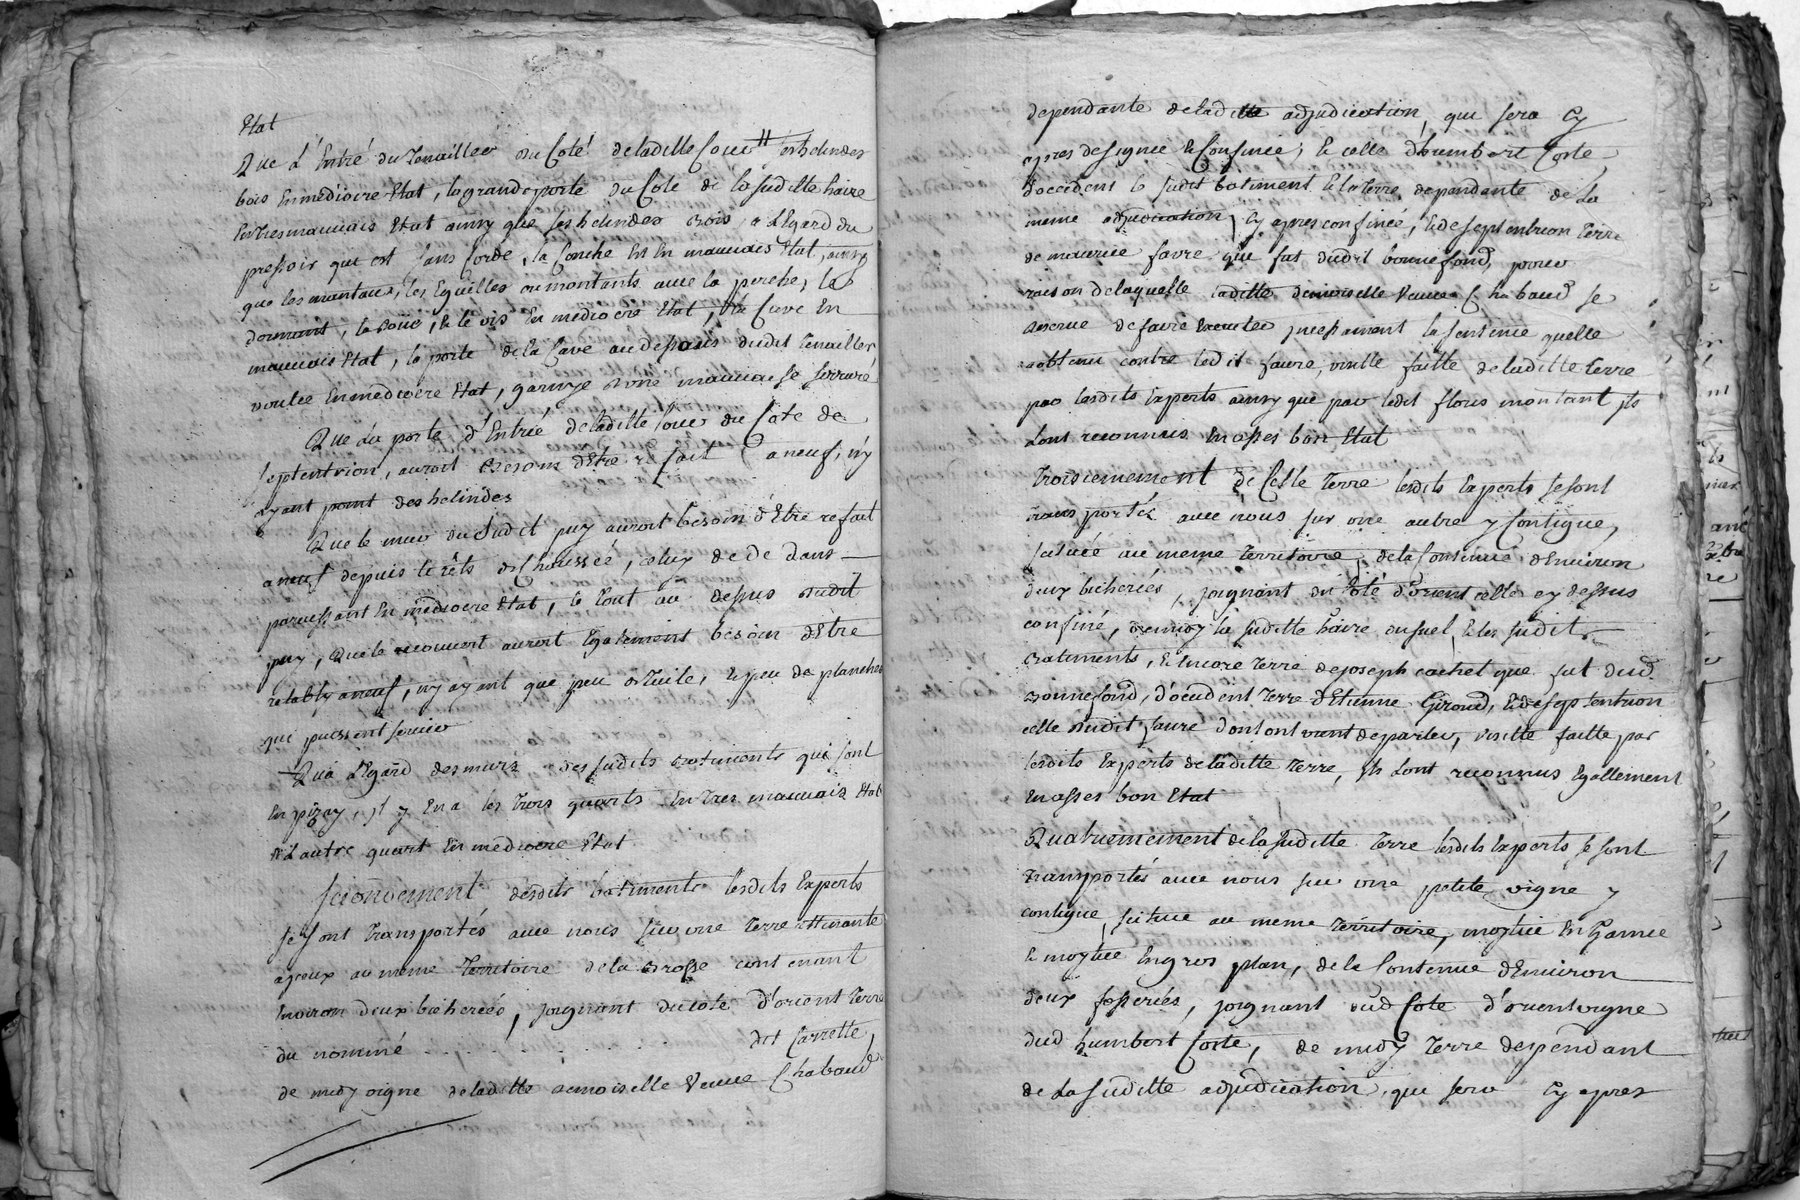 Etat
Que L'Entré du Tenaillier du Coté deladitte Cour et helindes
bois Enmediocre Etat, la grande porte du Coté de la susditte haire
Entres mauvais Etat ainsy que ses helindes bois a L'Egard du
pressoir qui est sans Corde, la Conche En En mauvais Etat, ainsy
que les mantaux, les Eguilles ou montants avec la perche, le
dormant, la Roüe, & le vis En mediocre Etat, la Cuve En
mauvais Etat, la porte dela Cave audessous dudit Tenaillier,
voutée Enmediocre Etat, garnye d'une mauvaise serrure
Que La porte d'Entrée deladitte Cour du Coté de
septentrion, auroit besoin d'Etre refait aneuf, n'y
ayant point des helindes
Que le mur dudit puy auroit besoin d'Etre refait
aneuf depuis le rets de Chaussée, celuy de De dans
paroissant En mediocre Etat, le tout au dessus dudit
puy, Que le couvert auroit Egalement besoin d'Etre
retably aneuf, n'y ayant que peu de Tuile, & peu de planches
qui puissent servir
Qua L'Egard des murs des susdits batiments qui sont
En pizay, il y En a les trois quarts En Tres mauvais Etat
& L'autre quart En mediocre Etat
Secondement desdits batiments lesdits Experts
se sont Transportés avec nous sur une Terre attenante
a jceux au même Territoire de la Brosse contenant
Environ deux bicherées, joignant du coté d'orient Terre
du nommé . . . . . . . . . dit Carrette,
de midy vigne deladitte demoiselle Veuve Chabaud
dependante deladitte adjudication, que sera Cy
apres designée & Confinée, & celle d'humbert Coste
d'occident le susdit batiment & la terre dependante de La
meme adjudication Cy apres confinée, & de septentrion Terre
de mauriee favre que fut dudit bonnefond, pour
raison de laquelle laditte demoiselle Veuve Chabaud se
de faire Executer jncessament la sentence quelle
a obtenu contre ledit favre, visitte faitte deladitte Terre
par lesdits Experts ainsy que par ledit fleuris montant jls
Lont reconnus En asses bon Etat
Troisiemement de Celle Terre lesdits Experts se sont
transportés avec nous sur une autre y Contigue,
scituée au meme Territoire, dela Contenue d'Environ
deux bicherées, joignant du Coté d'orient celle cy dessus
confiné, de midy la susditte haire ou suel & les susdit.
Batiments, & Encore Terre de joseph cachet que fut dud.
Bonnefond, d'occident Terre d'Etienne Giroud, & de septentrion
celle dudit favre dont ont vient deparler, visitte faitte par
lesdits Experts deladitte Terre, jls Lont reconnus Egallement
En asses bon Etat
Quatriemement de la susditte Terre lesdits Experts se sont
Transportés avec nous sur une petite vigne y
contigue, scituée au meme Territoire, moytié En
& moytié En gros plan, de la Contenue d'Environ
deux fosserées, joignant dud Coté d'orient vigne
dud humbert Coste, de midy Terre dependant
de La susditte adjudication, que sera Cy apres